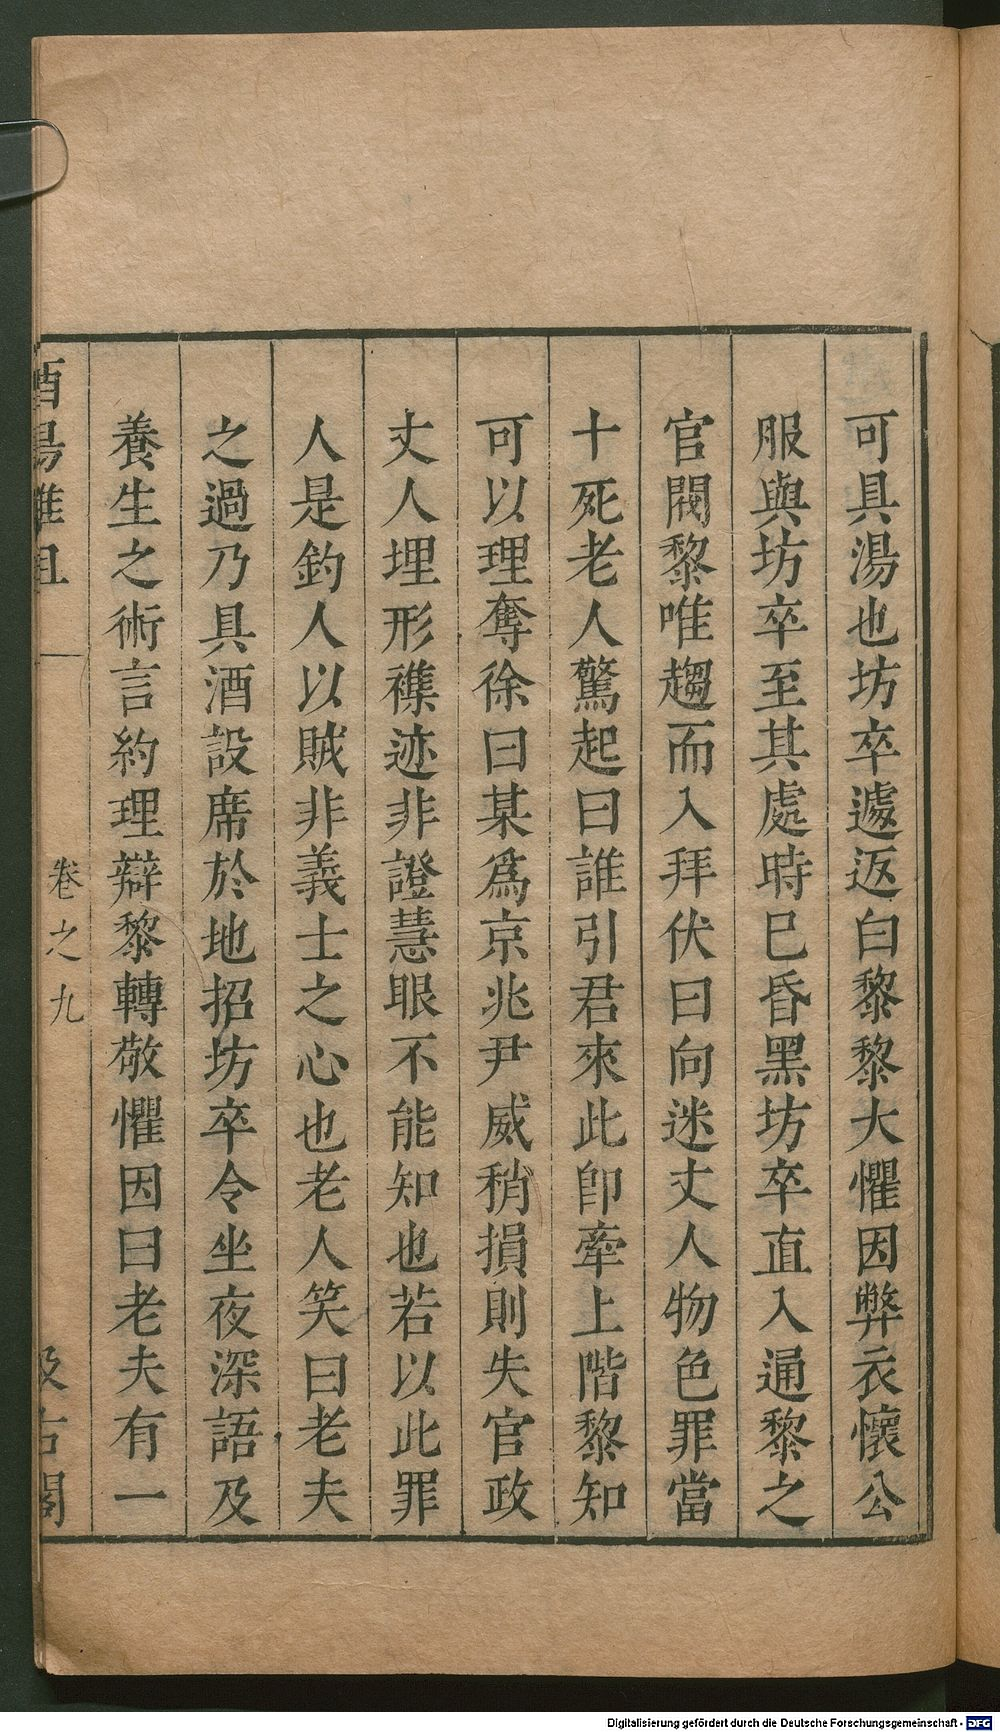 可具湯也坊卒遽返白黎黎大懼因弊衣懷公
服與坊卒至其處時已昏黑坊卒直入通黎之
官閥黎唯趨而入拜伏曰向迷丈人物色罪當
十死老人驚起曰誰引君來此卽牽上階黎知
可以理奪徐曰某爲京兆尹威稍損則失官政
丈人埋形襍迹非證慧眼不能知也若以此罪
人是釣人以賊非義士之心也老人笑曰老夫
之過乃具酒設席於地招坊卒令坐夜深語及
養生之術言約理辯黎轉敬懼因曰老夫有一
酉陽雜俎
卷之九
汲古閣
Digitalisierung gefördert durch die Deutsche Forschungsgemeinschaft - DFG